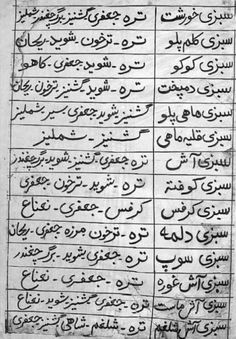 سبزی خورشت تره جعفری گشنیز برگ چغندر شملیز
سبزی کلم پلو تره - ترخون - شوید - ریحان
سبزی کوکو تره - شوید - جعفری - کاهو
سبزی دمپخت تره - گشنیز - شوید - ترخون - ریحان
سبزی ماهی پلو گشنیز شوید جعفری - سیر - شملیز
سبزی قلیه ماهی گشنیز - شملیز
سبزی آش تره جعفری - گشنیز - شوید - برگ چغندر
سبزی کوفته تره - شوید - ترخون - جعفری
سبزی کرفس کرفس - جعفری - نعناع
سبزی دلمه تره - ترخون مرزه جعفری - ریحان
سبزی سوپ تره جعفری شوید - برگ چغندر
سبزی آش غوره تره - جعفری - نعناع
سبزی آش ماست تره - جعفری گشنیز شوید - نعناع
سبزی آش شلغم تره - شلغم - شاهی گشنیز جعفری